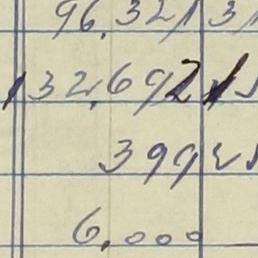 96,321 3
132,692 15
399 25
6,000